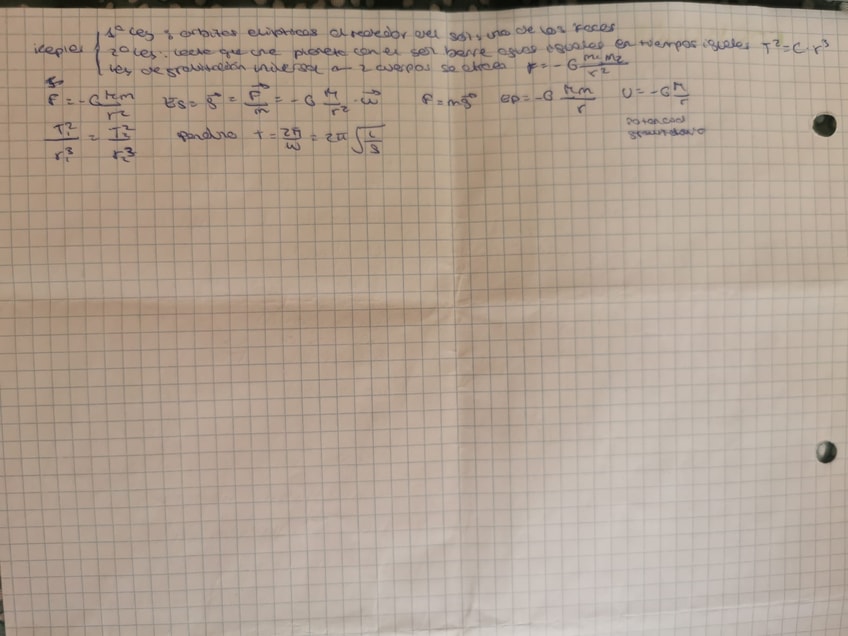 1ª Ley: orbitas elipticas alrededor del sol, uno de los focos
Kepler 2ª Ley: recta que une planeta con el sol barre areas iguales en tiempos iguales T² = C · r³
Ley de gravitación universal → 2 cuerpos se atraen F = -G m₁m₂/r²
F = -G Mm/r² g = F/m = -G M/r² · u F = mg Ep = -G Mm/r U = -G M/r
potencial
T₁²/r₁³ = T₂²/r₂³ Pendulo T = 2π/ω = 2π√(L/g) gravitatorio